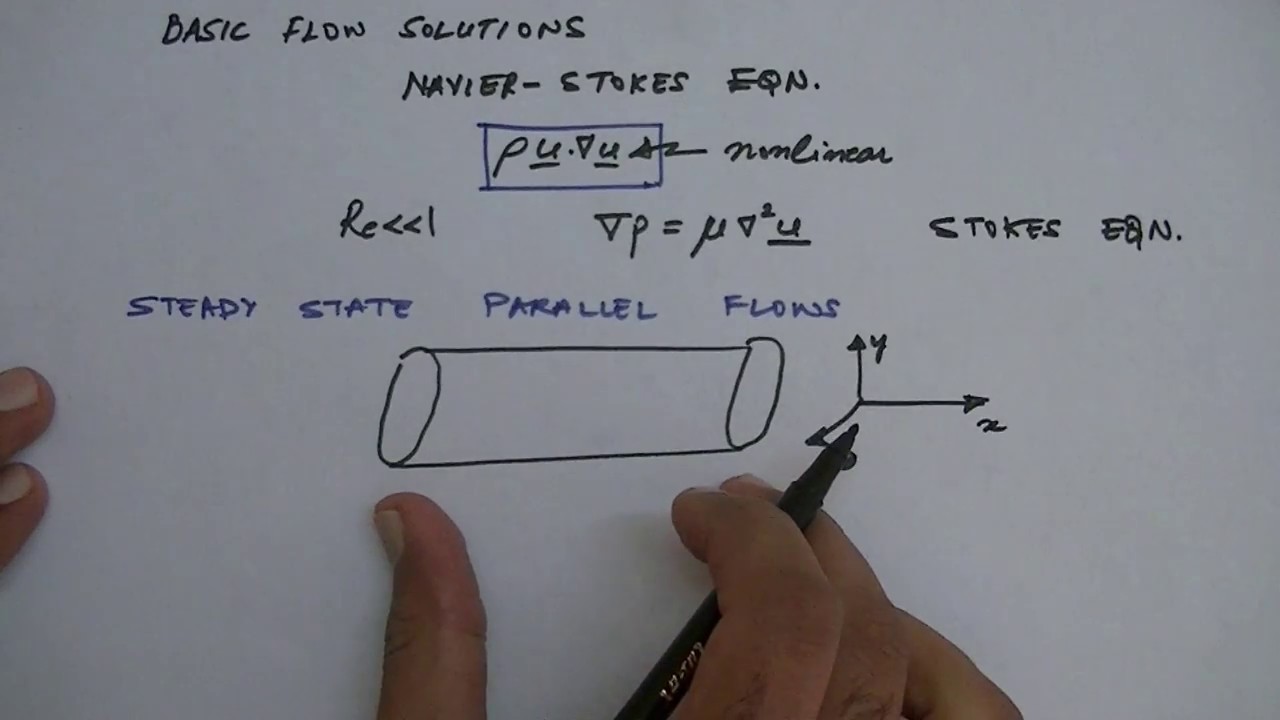 BASIC FLOW SOLUTIONS
NAVIER-STOKES EQN.
ρ u·∇u ← nonlinear
Re<<1 ∇p = μ∇²u STOKES EQN.
STEADY STATE PARALLEL FLOWS
y
x